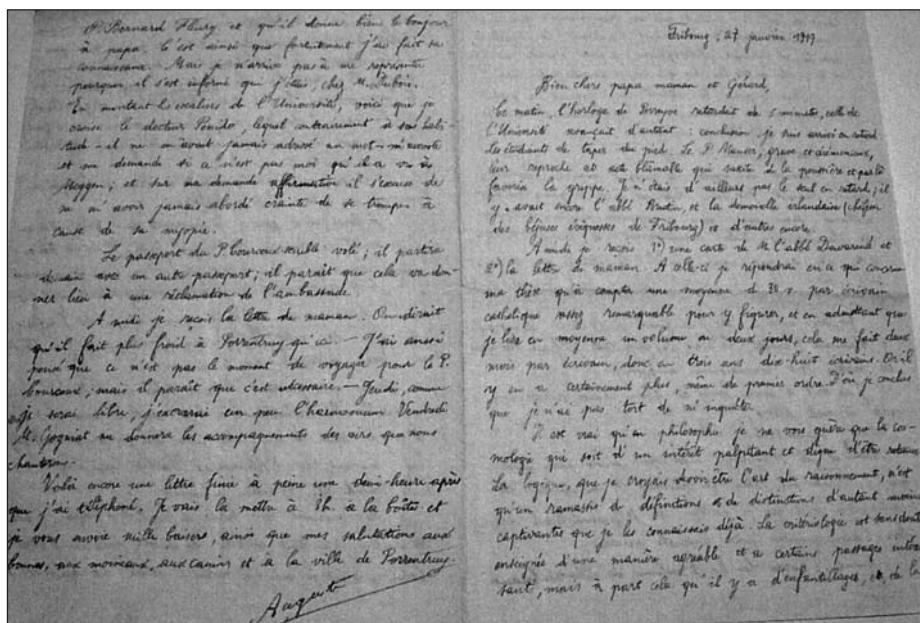 P. Bernard Fleury et qu'il donne bien le bonjour
à papa. C'est ainsi que fortuitement j'ai fait sa
connaissance. Mais je n'arrive pas à me représenter
pourquoi il s'est informé qui j'étais, chez M. Dubois.
En montant les escaliers de l'Université, voici que je
croise le docteur lequel contrairement à son habi-
tude - il ne m'avait jamais adressé un mot - m'accoste
et me demande si ce n'est pas moi qu'il a vu à
Meggen ; et sur ma demande affirmative il s'excuse de
ne m'avoir jamais abordé crainte de se tromper à
cause de sa myopie.
Le passeport du P. semble volé ; il partira
avec un autre passeport ; il paraît que cela va don-
ner lieu à une réclamation de l'ambassade.
A midi je reçois la lettre de maman. On dirait
qu'il fait plus froid à Porrentruy qu'ici. — J'ai aussi
pensé que ce n'est pas le moment de voyager pour le P.
mais il paraît que c'est nécessaire. — Jeudi, comme
je serai libre, j'exercerai un peu l'harmonium. Vendredi
M. me donnera les accompagnements des airs que nous
chantons.
Voilà encore une lettre finie à peine une demi-heure après
que j'ai téléphoné. Je vais la mettre à 3h. à la boîte et
je vous envoie mille baisers, ainsi que mes salutations aux
bonnes, aux moineaux, aux et à la ville de Porrentruy.
Auguste
Fribourg, 27 janvier 1919
Bien chers papa maman et Gérard,
Ce matin, l'horloge de retardait de 5 minutes, celle de
l'Université avançait d'autant : conclusion, je suis arrivé en retard
les étudiants de taper du pied. Le P. Manser, grave et cérémonieux,
leur reproche cet acte blâmable qui suscite la poussière et par là
favorise la grippe. Je n'étais d'ailleurs pas le seul en retard ; il
y avait encore l'abbé et la demoiselle irlandaise
de Fribourg) et d'autres encore.
A midi je reçois 1°) une carte de M. l'abbé et
2°) la lettre de maman. A celle-ci je répondrai en ce qui concerne
ma thèse qu'à compter une moyenne de 30 v. par écrivain
catholique assez remarquable pour y figurer, et en admettant que
je lise en moyenne un volume en deux jours, cela me fait deux
mois par écrivain, donc en trois ans dix-huit écrivains. Or il
y en a certainement plus, même de premier ordre. D'où je conclus
que je n'ai pas tort de m'inquiéter.
Il est vrai qu'en philosophie je ne vois guère que la cos-
mologie qui soit d'un intérêt palpitant et digne d'être retenue.
La logique, que je croyais devoir être l'art du raisonnement, n'est
qu'un ramassis de définitions et de distinctions d'autant moins
captivantes que je les connaissais déjà. La critériologie est sans doute
enseignée d'une manière agréable et a certains passages intéres-
sants, mais à part cela qu'il y a d'enfantillages, et de la